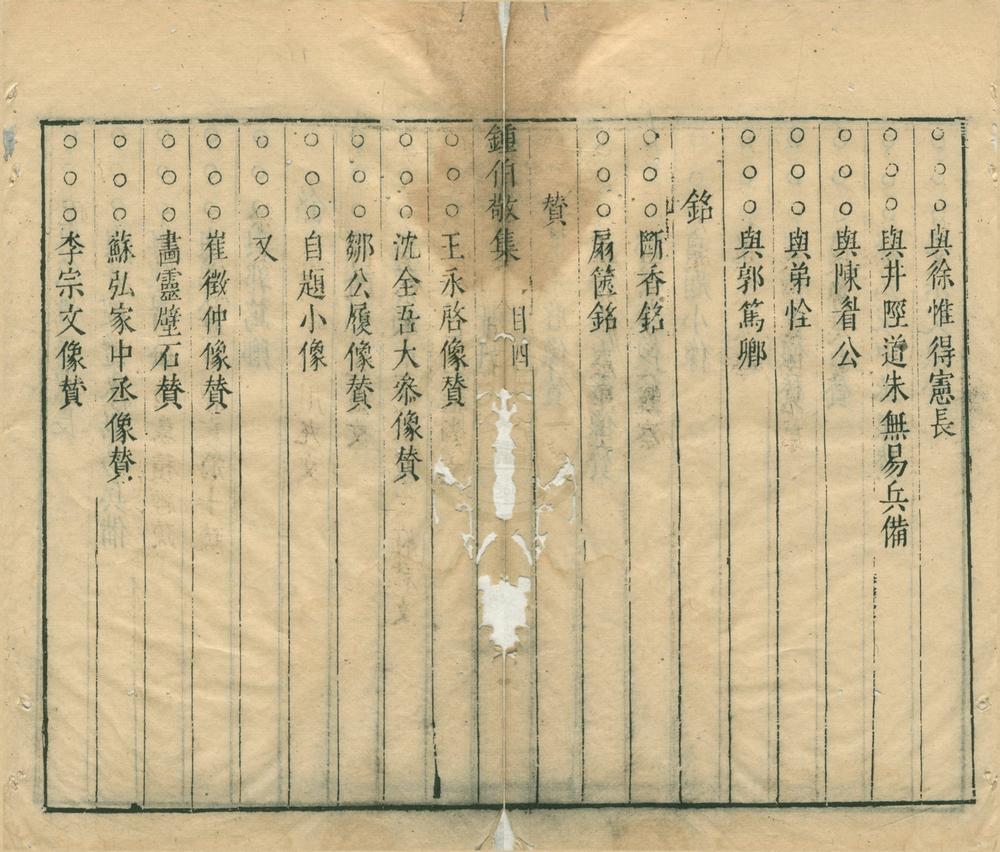 ○○○與徐惟得憲長
○○○與井陘道朱無易兵備
○○○與陳眉公
○○○與弟恮
○○○與郭篤卿
銘
○○○斷香銘
○○○扇篋銘
賛
鍾伯敬集 目四
○○○王永啓像賛
○○○沈全吾大叅像賛
○○○鄒公履像賛
○○○自題小像
○○○又
○○○崔徵仲像賛
○○○畫靈壁石賛
○○○蘇弘家中丞像賛
○○○李宗文像賛